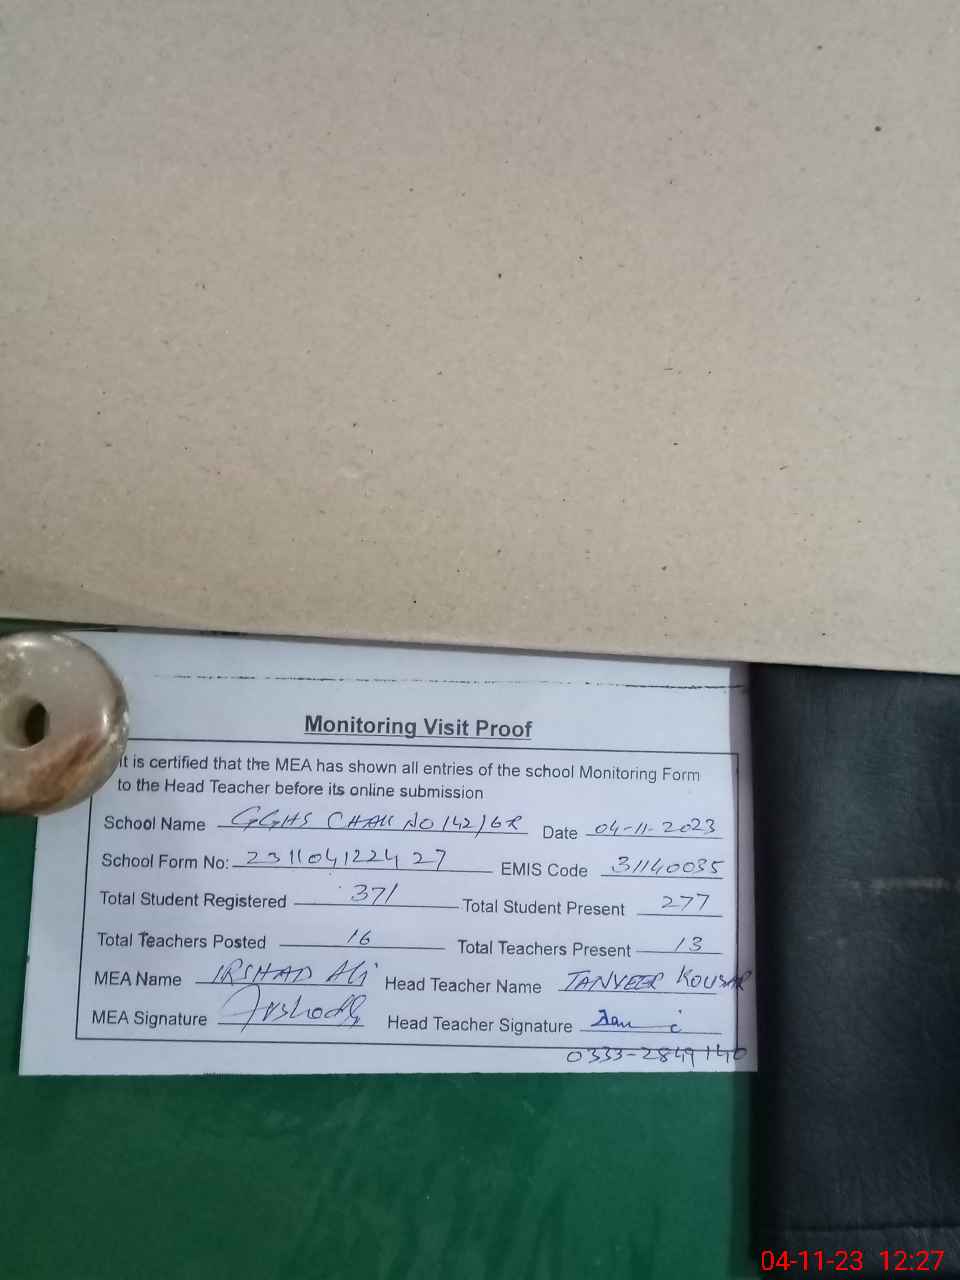 Monitoring Visit Proof
It is certified that the MEA has shown all entries of the school Monitoring Form
to the Head Teacher before its online submission
School Name GGHS CHAK NO 142/GR Date 04-11-2023
School Form No: 231104122427 EMIS Code 31140035
Total Student Registered 371 Total Student Present 277
Total Teachers Posted 16 Total Teachers Present 13
MEA Name IRSHAD Ali Head Teacher Name TANVEER KOUSAR
MEA Signature Head Teacher Signature
0333-2849140
04-11-23 12:27